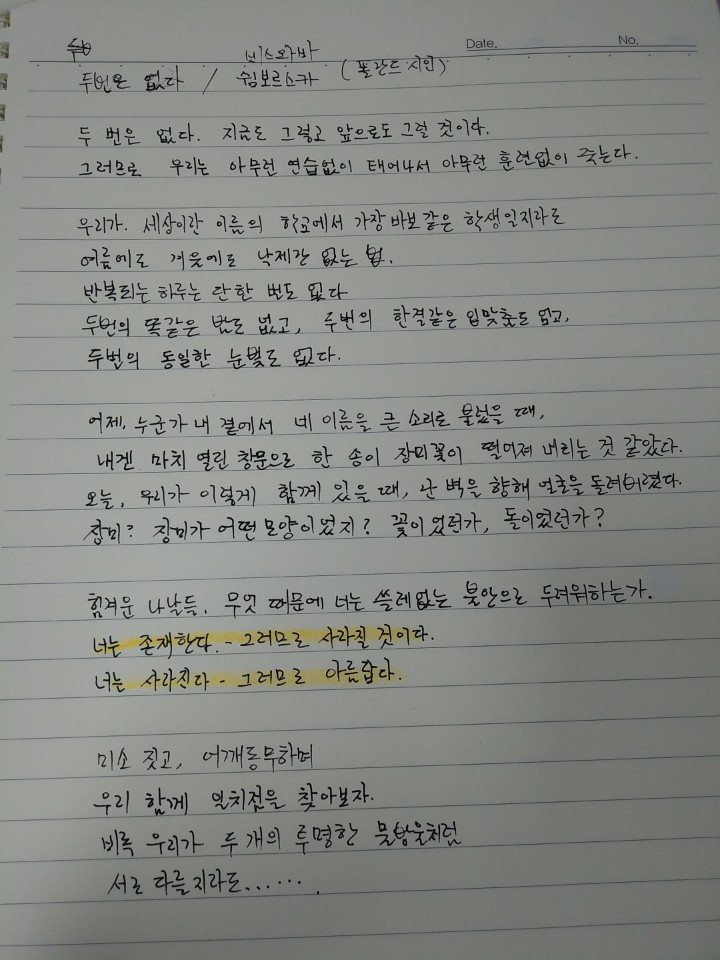 Date. No.
비스와바
두번은 없다 / 쉼보르스카 (폴란드 시인)
두 번은 없다. 지금도 그렇고 앞으로도 그럴 것이다.
그러므로 우리는 아무런 연습없이 태어나서 아무런 훈련없이 죽는다.
우리가. 세상이란 이름의 학교에서 가장 바보같은 학생일지라도
여름에도 겨울에도 낙제란 없는 법.
반복되는 하루는 단 한 번도 없다
두번의 똑같은 밤도 없고, 두번의 한결같은 입맞춤도 없고,
두번의 동일한 눈빛도 없다.
어제, 누군가 내 곁에서 네 이름을 큰 소리로 불렀을 때,
내겐 마치 열린 창문으로 한 송이 장미꽃이 떨어져 내리는 것 같았다.
오늘, 우리가 이렇게 함께 있을 때, 난 벽을 향해 얼굴을 돌려버렸다.
장미? 장미가 어떤 모양이었지? 꽃이었던가, 돌이었던가?
힘겨운 나날들, 무엇 때문에 너는 쓸데없는 불안으로 두려워하는가.
너는 존재한다. - 그러므로 사라질 것이다.
너는 사라진다 - 그러므로 아름답다.
미소 짓고, 어깨동무하며
우리 함께 일치점을 찾아보자.
비록 우리가 두 개의 투명한 물방울처럼
서로 다를지라도.......